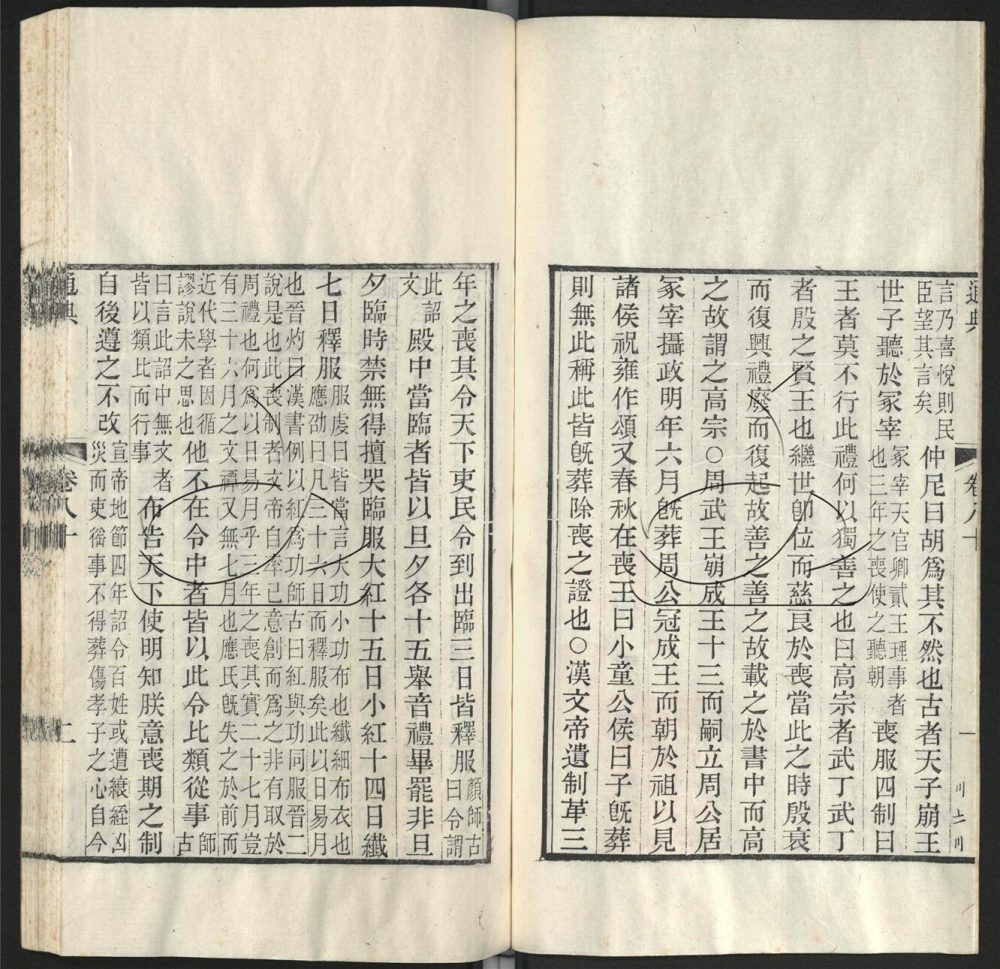 通典
卷八十
一
言乃喜悅則民
臣望其言矣
仲尼曰胡爲其不然也古者天子崩王
世子聽於冢宰
冢宰天官卿貳王理事者
也三年之喪使之聽朝
喪服四制曰
王者莫不行此禮何以獨善之也曰高宗者武丁武丁
者殷之賢王也繼世卽位而慈良於喪當此之時殷衰
而復興禮廢而復起故善之善之故載之於書中而高
之故謂之高宗○周武王崩成王十三而嗣立周公居
冢宰攝政明年六月旣葬周公冠成王而朝於祖以見
諸侯祝雍作頌又春秋在喪王曰小童公侯曰子旣葬
則無此稱此皆旣葬除喪之證也○漢文帝遺制革三
年之喪其令天下吏民令到出臨三日皆釋服
顏師古
曰令謂
此詔
文
殿中當臨者皆以旦夕各十五舉音禮畢罷非旦
夕臨時禁無得擅哭臨服大紅十五日小紅十四日纖
七日釋服
服虔曰皆當言大功小功布也纖細布衣也
應劭曰凡三十六日而釋服矣此以日易月
也晉灼曰漢書例以紅爲功師古曰紅與功同服晉二
說是也此喪制者文帝自率己意創而爲之非有取於
周禮也何爲以日易月乎三年之喪其實二十七月豈
有三十六月之文禫又無七月也應氏旣失之於前而
近代學者因循
謬說未之思也
他不在令中者皆以此令比類從事
師
古
曰言此詔中無文者
皆以類比而行事
布告天下使明知朕意喪期之制
自後遵之不改
宣帝地節四年詔令百姓或遭縗絰凶
災而吏徭事不得葬傷孝子之心自今
通典
卷八十
二